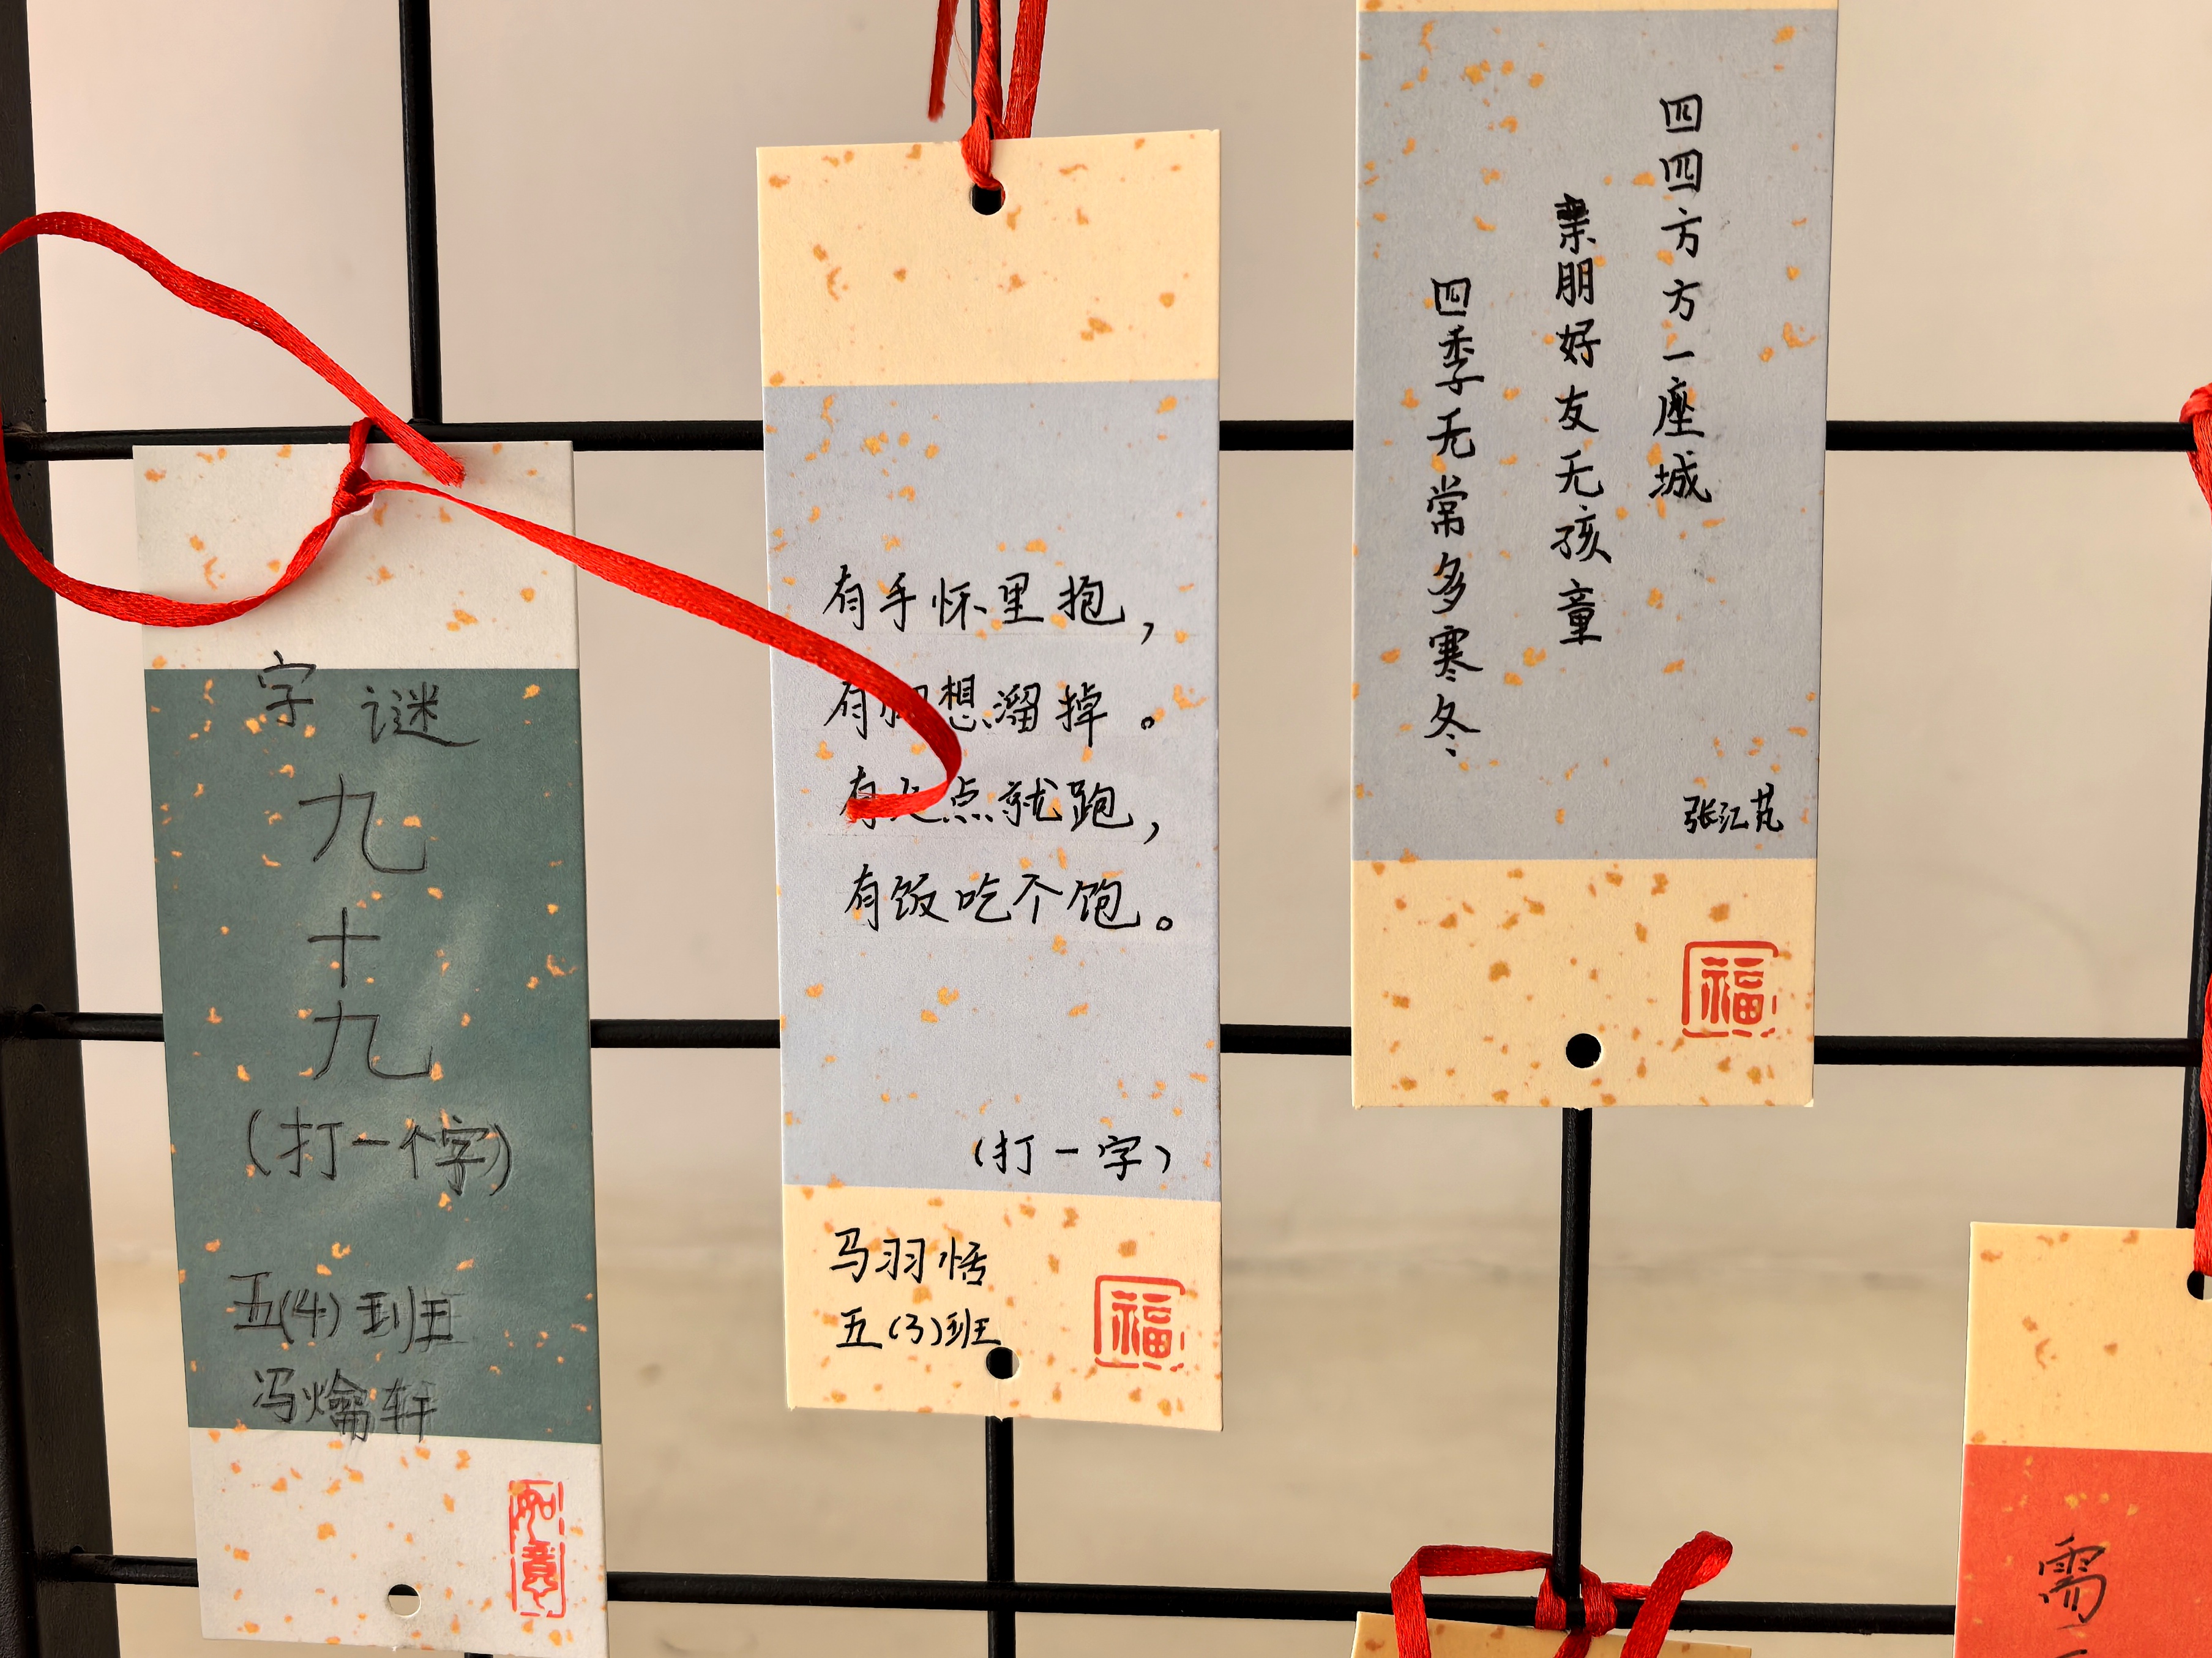 字谜
九
十
九
(打一个字)
五(4)班
冯爚轩
如意
有手怀里抱,
有想溜掉。
有火点就跑,
有饭吃个饱。
(打一字)
马羽恬
五(3)班
福
四四方方一座城
亲朋好友无孩童
四季无常多寒冬
张江芃
福
需